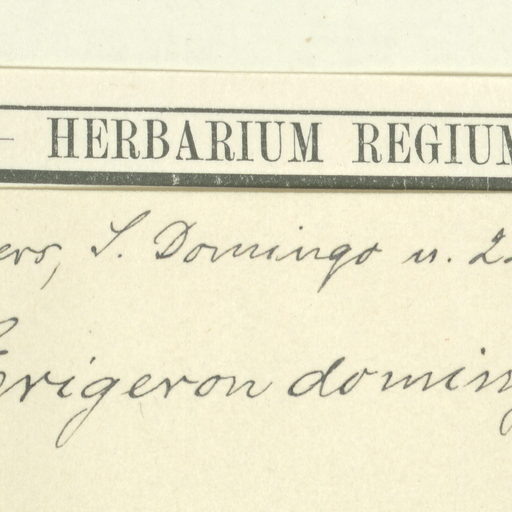 — HERBARIUM REGIUM
ers, S. Domingo n. 2
Erigeron doming